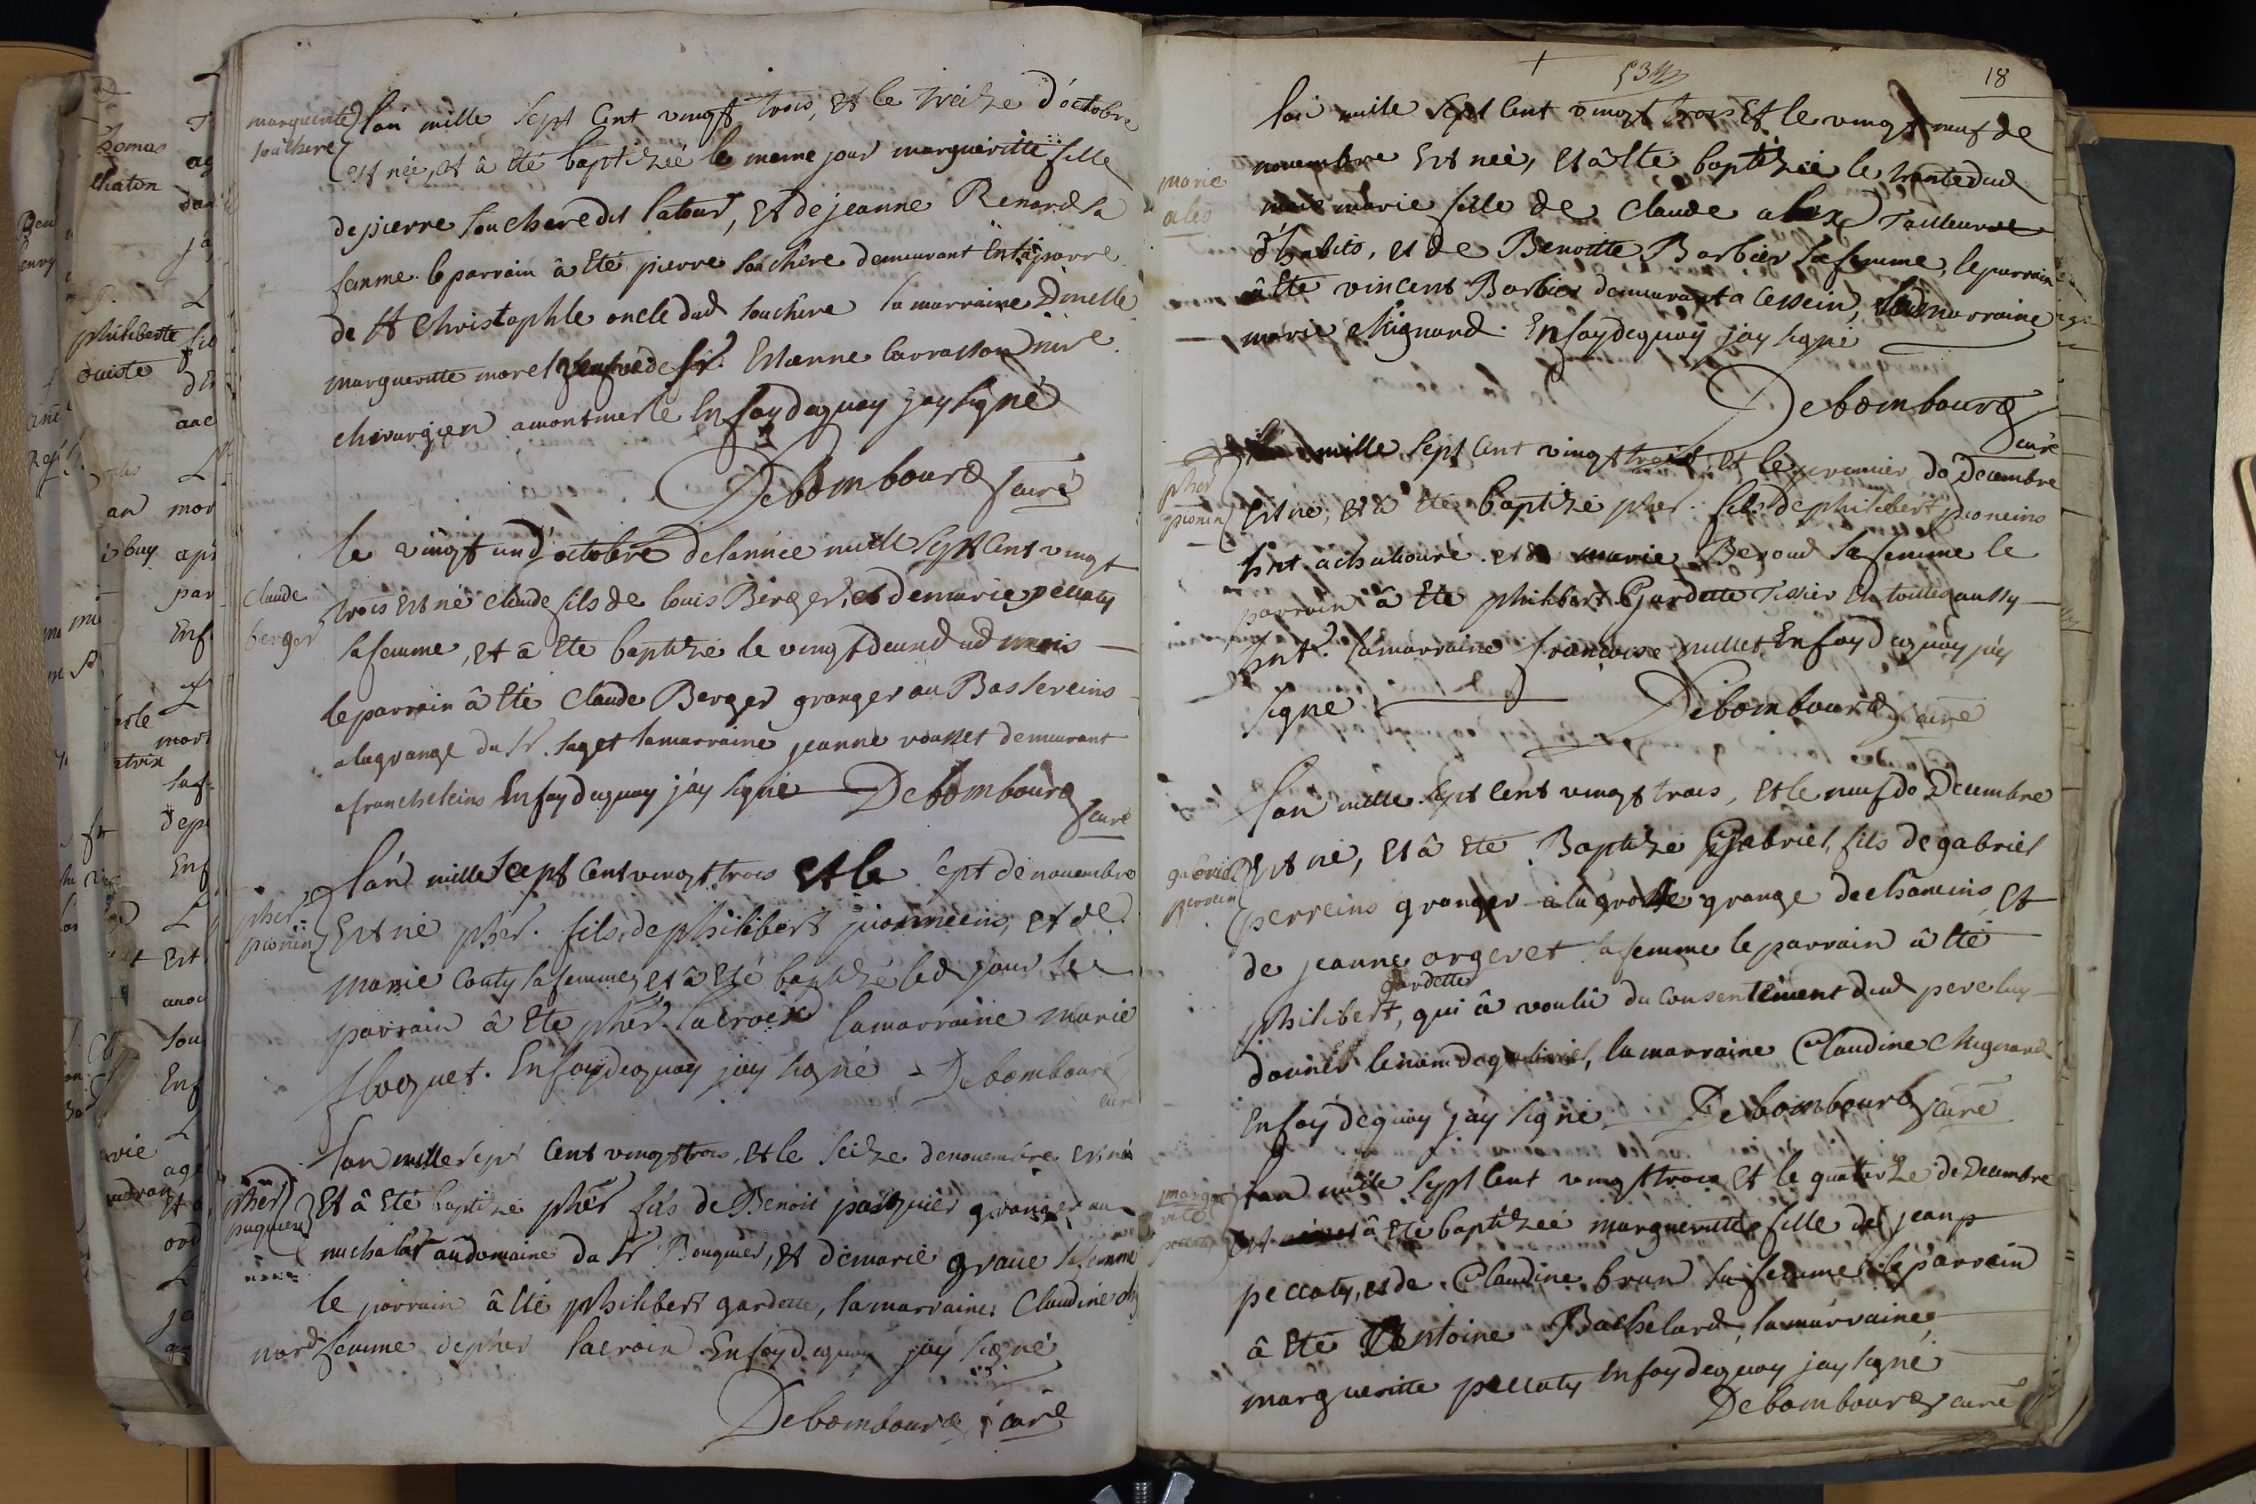 marguerite
souchere
l'an mille sept cent vingt trois, et le treitze d'octobre
est née, et â été baptizéé le meme jour margueritte fille
de pierre souchere dit latour, et de jeanne Renard sa
femme. le parrain â été pierre souchere demeurant
de st Christophle oncle dud souchere la marraine Dmelle
margueritte morel veufve de sr. Estienne Carraston mre
chirurgien a montmerle En foy dequoy jay signé
Debombourg curé
claude
berger
le vingt un d'octobre de lannée mille sept cent vingt
trois est né claude fils de louis Berger, et de marie peccaty
sa femme, et â été baptizé le vingt deux dud mois
le parrain â été Claude Berger granger au Bas sereins
a la grange du sr. saget la marraine jeanne vousset demeurant
a francheleins En foy dequoy j'ay signé Debombourg
curé
pher
pionin
l'an mille sept cent vingt trois et le sept de novembre
Est né pher. fils de philibert pionnein, et de
marie Couty sa femme, et â été baptizé led jour le
parrain â été pher. lacroix la marraine marie
floquet. En foy dequoy jay signé Debombourg
curé
pher
paquier
l'an mille sept cent vingt trois, et le seize de novembre est né
et â été baptizé pher fils de Benoit pasquier granger au
michalat au domaine du sr Bouquier, et de marie grave sa femme
le parrain â été philibert gardette, la marraine Claudine chig
nard femme de pher lacroix En foy dequoy jay signé
Debombourg curé
18
53
marie
ales
l'an mille sept cent vingt trois et le vingt neuf de
novembre Est née, et â été baptizéé le trente dud
mois marie fille de claude alex Tailleur
d'habits, et de Benoitte Barbier sa femme, le parrain
â été vincent Barbier demeurant a Cessein, la marraine
marie chignard. En foy dequoy jay signé
Debombourg
curé
pher
pionin
l'an mille sept cent vingt trois et le premier de Decembre
Est né, et â été baptizé pher. fils de philibert pioneins
hnt a chaliouvre et de marie Beroud sa femme le
parrain â été philibert Gardette Tissier en toilles aussy
hnt. la marraine francoise millet En foy dequoy jay
signé Debombourg curé
gabriel
perrein
l'an mille sept cent vingt trois, et le neuf de Decembre
Est né, et â été Baptizé Gabriel, fils de gabriel
perreins granger a la grosse grange de chaneins, et
de jeanne orgeret sa femme le parrain â été
gardette
philibert, qui â voulu du consentement dud pere luy
donner le nom de gabriel, la marraine Claudine chignard
En foy dequoy j'ay signé Debombourg curé
margue
ritte
peccaty
l'an mille sept cent vingt trois et le quatorze de Decembre
est née et â été baptizéé margueritte fille de jean
peccaty, et de Claudine brun sa femme le parrain
â été Antoine Bachelard, la marraine
margueritte peccaty En foy dequoy jay signé
Debombourg curé